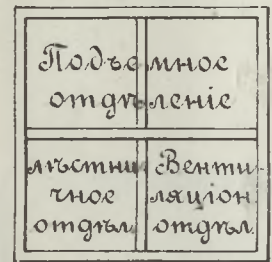 Подъемное
отдѣленіе
лѣстнич
чное
отдѣл.
Венти
ляціон.
отдѣл.